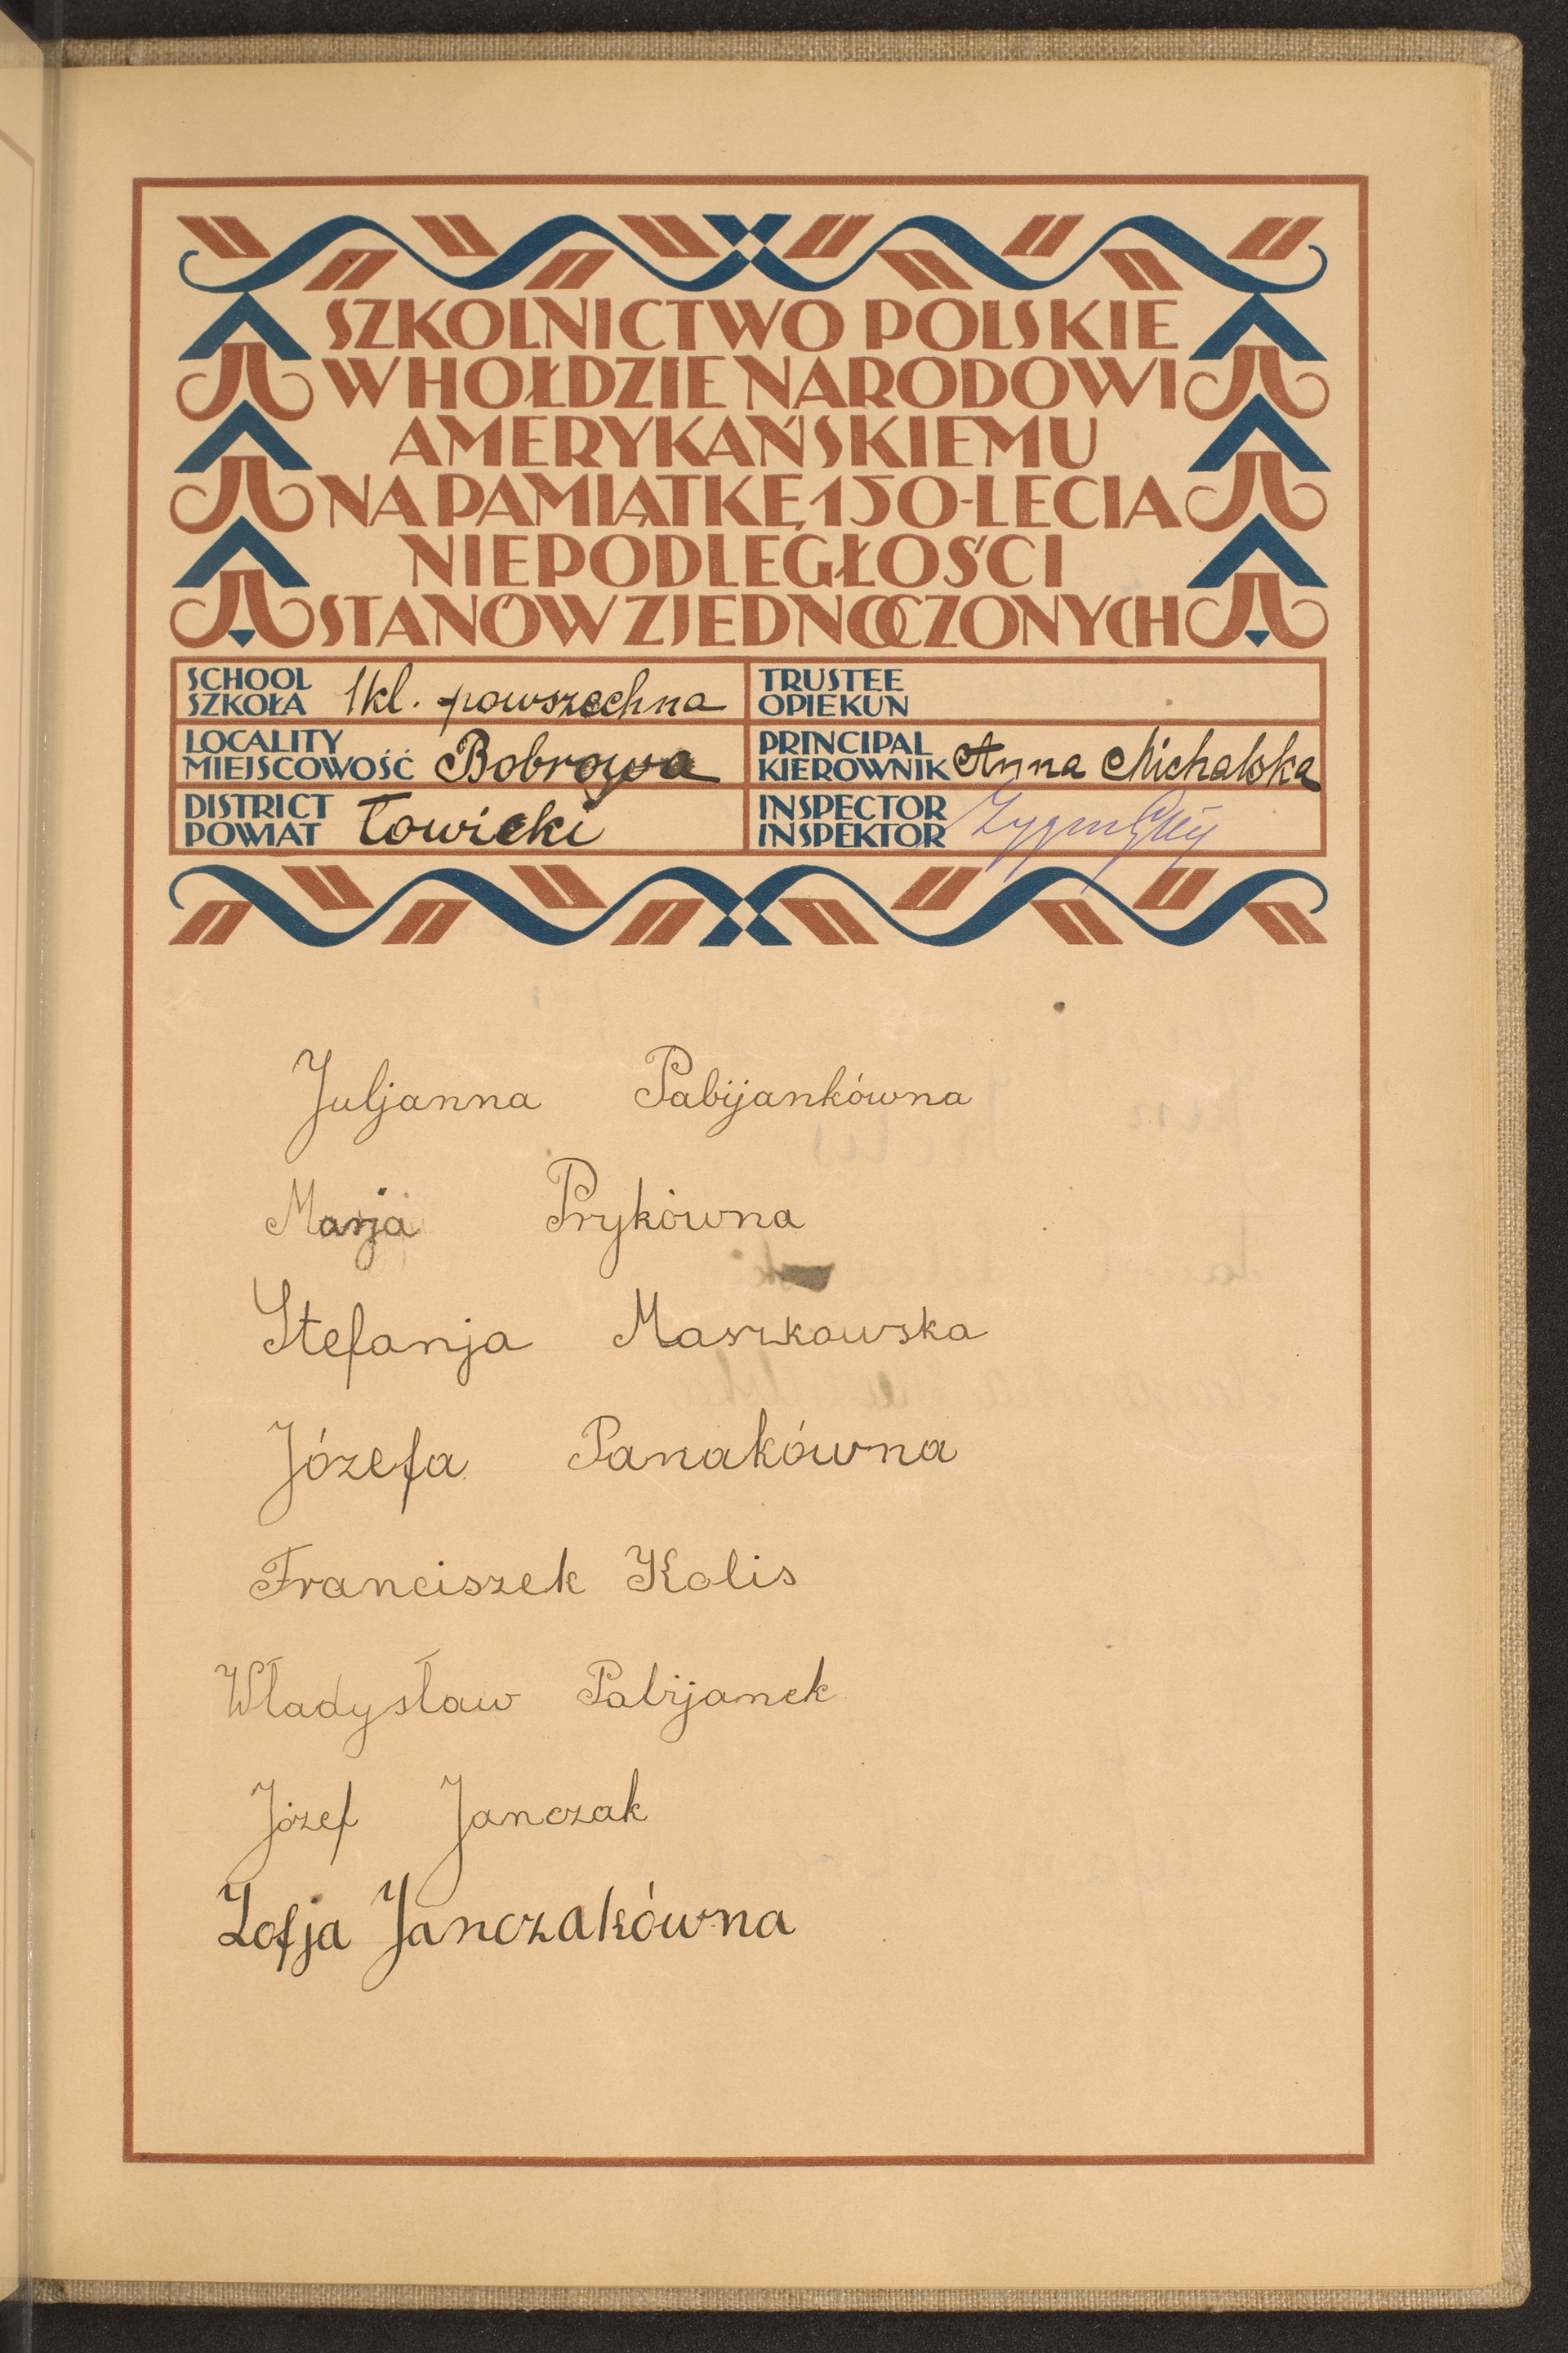 SZKOLNICTWO POLSKIE
W HOŁDZIE NARODOWI
AMERYKAŃSKIEMU
NA PAMIĄTKĘ 150-LECIA
NIEPODLEGŁOŚCI
STANÓW ZJEDNOCZONYCH
SCHOOL
SZKOŁA 1 kl. powszechna
TRUSTEE
OPIEKUN
LOCALITY
MIEJSCOWOŚĆ Bobrowa
PRINCIPAL
KIEROWNIK Anna Michalska
DISTRICT
POWIAT Łowicki
INSPECTOR
INSPEKTOR
Juljanna Pabijankówna
Marja Prykówna
Stefanja Maszkowska
Józefa Panakówna
Franciszek Kolis
Władysław Pabijanek
Józef Janczak
Zofja Janczakówna